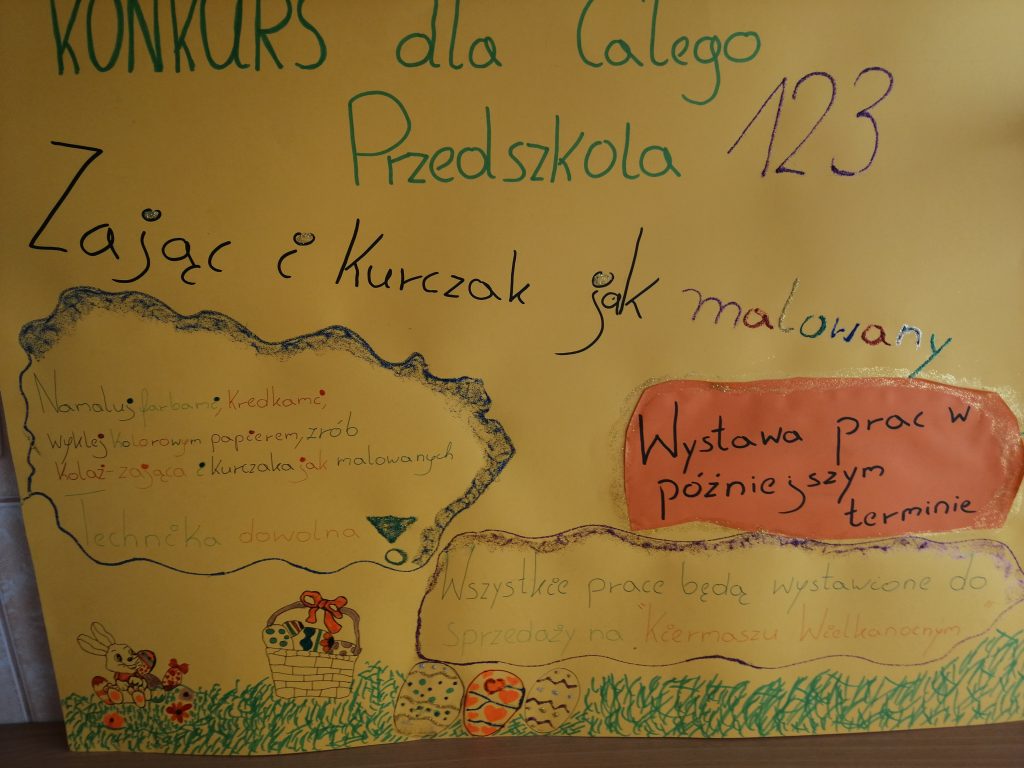 KONKURS dla Całego
Przedszkola 123
Zając i Kurczak jak malowany
Namaluj farbami, Kredkami,
wyklej Kolorowym papierem, zrób
Kolaż-zająca i Kurczaka jak malowanych
Technika dowolna!
Wystawa prac w
późniejszym
terminie
Wszystkie prace będą wystawione do
sprzedaży na "Kiermaszu Wielkanocnym"